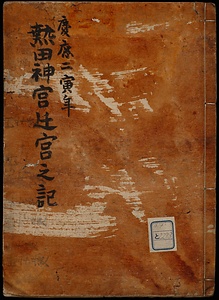 慶應二寅年
熱田神宮迁宮之記